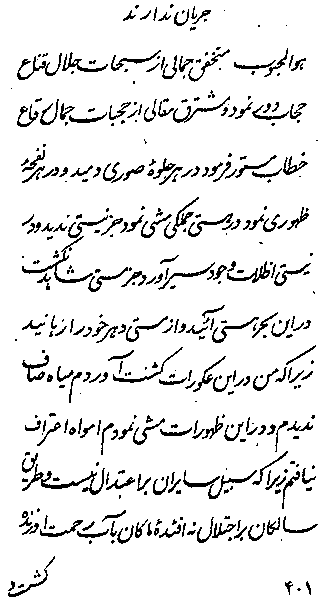 جریان ندارند
هوالمحبوب متحقق جمالی از سبحات جلال قناع
حجاب دور نمود و مشرق مقالی از حجبات جمال قاع
خطاب مستور فرمود در هر جلوهٔ صوری دمید و در هر نفحهٔ
ظهوری نمود در هستی جملگی مشی نمود جز نیستی ندید و در
نیستی اطلاعات وجود سیر آورد جز هستی شاهد نگشت
در این بحر هستی آئید و از هستی دهر خود را رهانید
زیرا که من در این عکورات گشت آوردم میاه صاف
ندیدم و در این ظهورات مشی نمودم امواه اعتراف
نیافتم زیرا که سبیل سایران بر اعتدال نیست و طریق
سالکان بر اجتلال نه افئدهٔ ماکان بآب رحمت
گشت و
۴۰۱